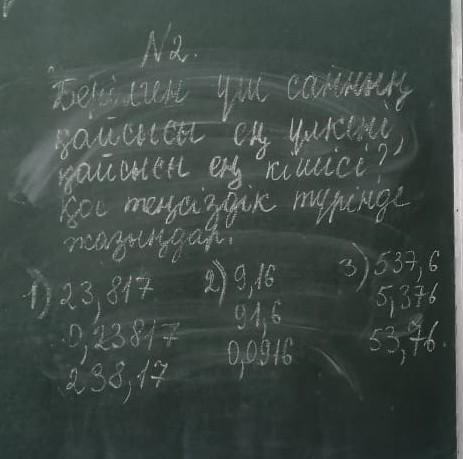 №2.
Берілген үш санның
қайсысы ең үлкені,
қайсысы ең кішісі?
Қос теңсіздік түрінде
жазыңдар.
1) 23,817
0,23817
238,17
2) 9,16
91,6
0,0916
3) 537,6
5,376
53,76